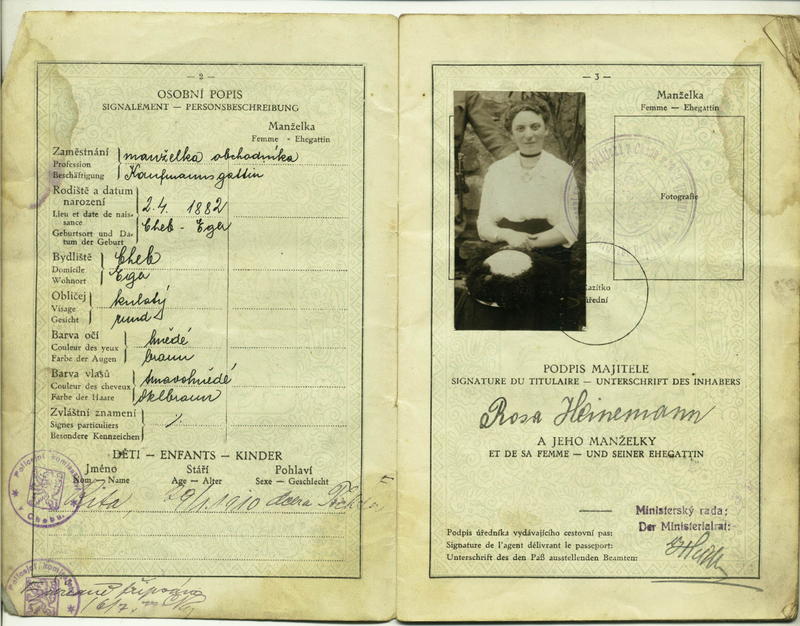 — 2 —
OSOBNÍ POPIS
SIGNALEMENT — PERSONSBESCHREIBUNG
Manželka
Femme - Ehegattin
Zaměstnání
Profession
Beschäftigung
manželka obchodníka
Kaufmannsgattin
Rodiště a datum
narození
Lieu et date de nais-
sance
Geburtsort und Da-
tum der Geburt
2.4. 1882
Cheb - Eger
Bydliště
Domicile
Wohnort
Cheb
Eger
Obličej
Visage
Gesicht
kulatý
rund
Barva očí
Couleur des yeux
Farbe der Augen
hnědé
braun
Barva vlasů
Couleur des cheveux
Farbe der Haare
tmavohnědé
dklbraun
Zvláštní znamení
Signes particuliers
Besondere Kennzeichen
DĚTI — ENFANTS — KINDER
Jméno Stáří Pohlaví
Nom — Name Age — Alter Sexe — Geschlecht
Rita 1910 dcera
v Chebu
— 3 —
Manželka
Femme — Ehegattin
Fotografie
Razítko
úřední
PODPIS MAJITELE
SIGNATURE DU TITULAIRE — UNTERSCHRIFT DES INHABERS
Rosa Heinemann
A JEHO MANŽELKY
ET DE SA FEMME — UND SEINER EHEGATTIN
Ministerský rada:
Der Ministerialrat:
Podpis úředníka vydávajícího cestovní pas:
Signature de l'agent délivrant le passeport:
Unterschrift des den Paß ausstellenden Beamten: